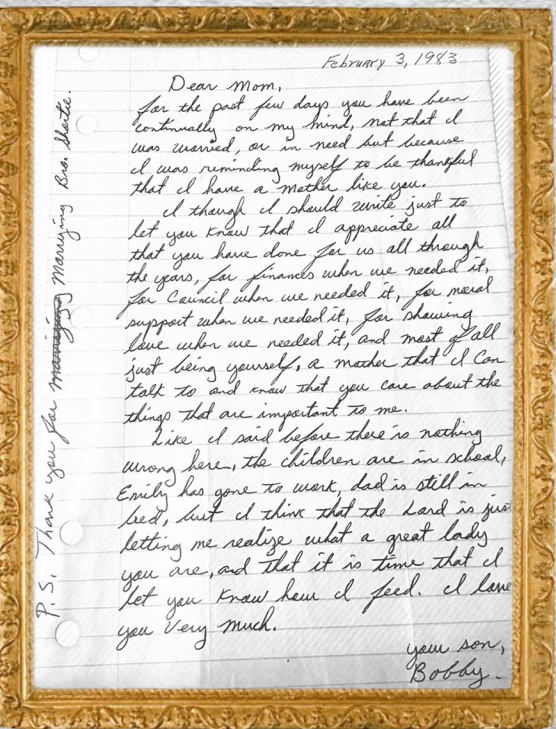 February 3, 1983
Dear Mom,
for the past few days you have been
continually on my mind, not that I
was worried, or in need but because
I was reminding myself to be thankful
that I have a mother like you.
I though I should write just to
let you know that I appreciate all
that you have done for us all through
the years, for finances when we needed it,
for Council when we needed it, for moral
support when we needed it, for showing
love when we needed it, and most of all
just being yourself, a mother that I can
talk to and know that you care about the
things that are important to me.
Like I said before there is nothing
wrong here, the children are in school,
Emily has gone to work, dad is still in
bed, but I think that the Lord is jus
letting me realize what a great lady
you are, and that it is time that I
let you know how I feed. I love
you very much.
your son,
Bobby.
P.S. Thank you for Marrying Bro. Shortie.